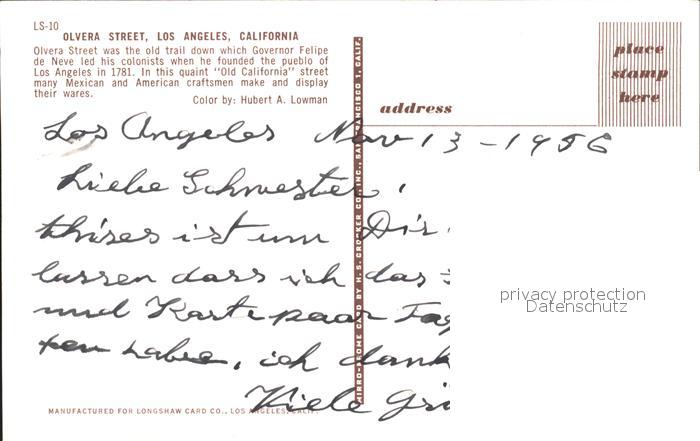 LS-10
OLVERA STREET, LOS ANGELES, CALIFORNIA
Olvera Street was the old trail down which Governor Felipe
de Neve led his colonists when he founded the pueblo of
Los Angeles in 1781. In this quaint "Old California" street
many Mexican and American craftsmen make and display
their wares.
Color by: Hubert A. Lowman
place
stamp
here
address
Los Angeles Nov 13-1956
Liebe Schwester,
thises ist um Dir
lassen dass ich das
und Karte paar Tag
habe, ich dank
Viele Grü
privacy protection
Datenschutz
MIRRO-KROME CARD BY H. S. CROCKER CO., INC., SAN FRANCISCO 1, CALIF.
MANUFACTURED FOR LONGSHAW CARD CO., LOS ANGELES, CALIF.